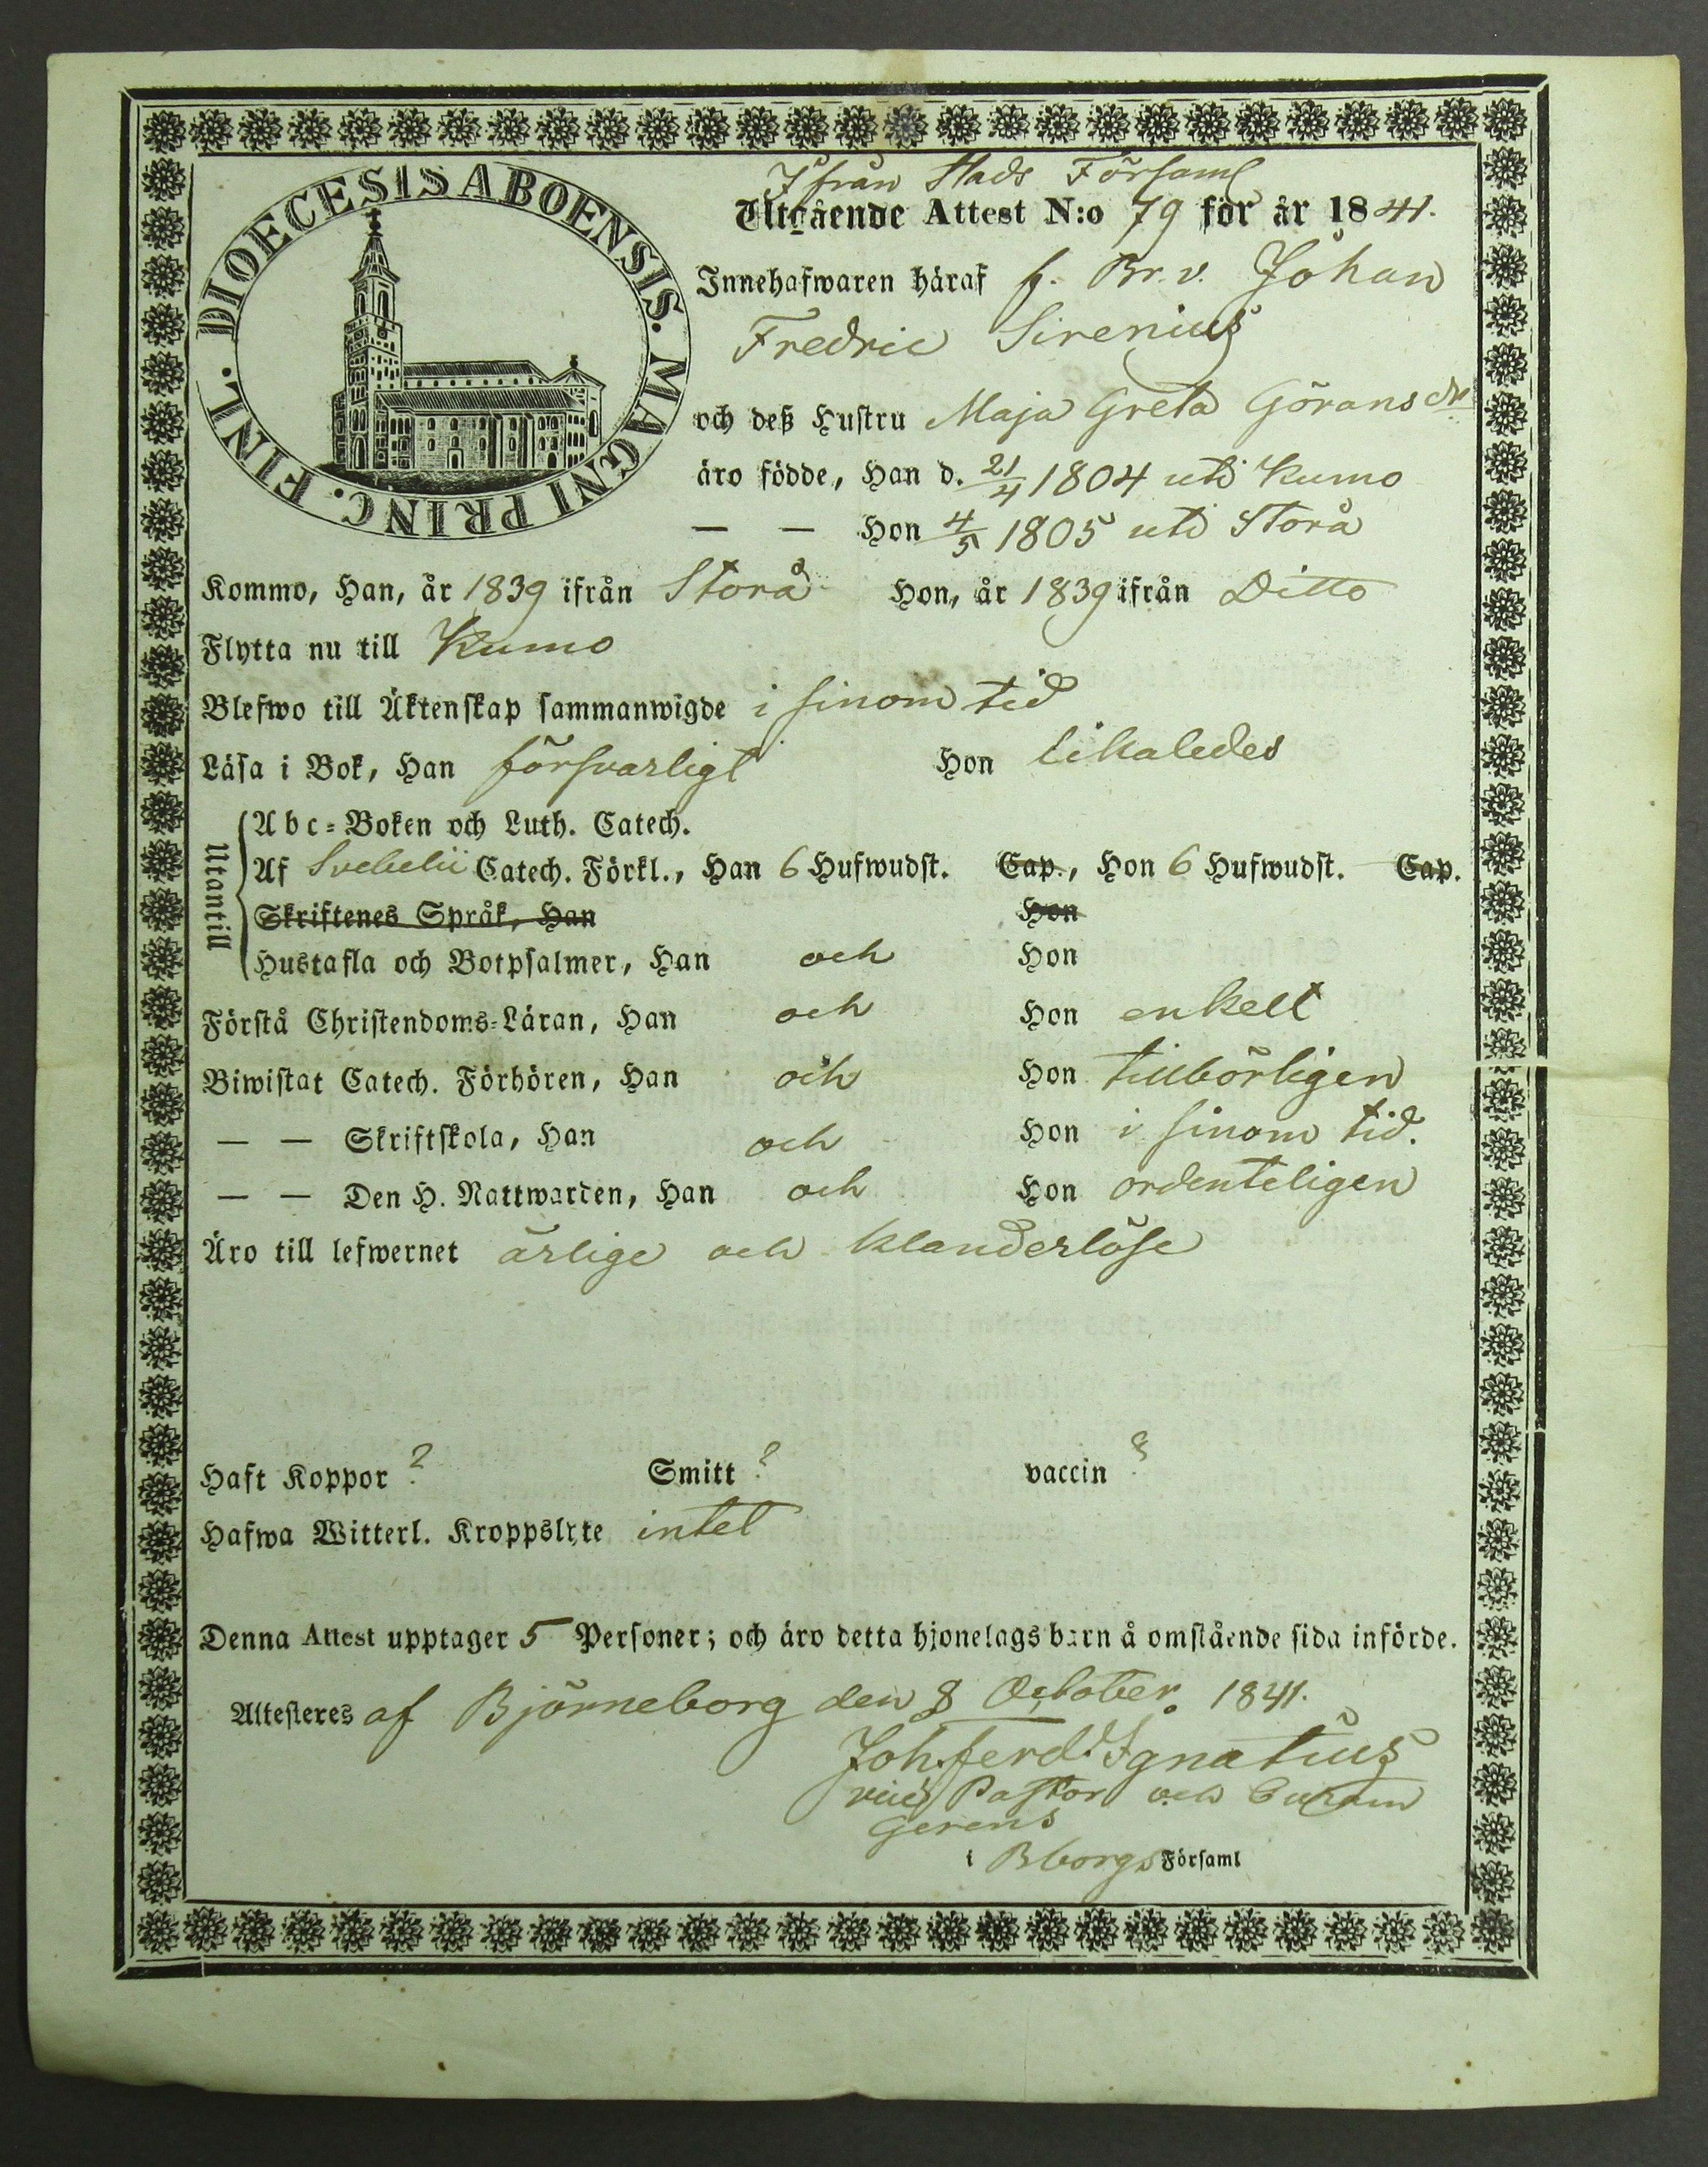 DIOECESIS ABOENSIS. MAGNI PRINC. FINL.
Ifrån Stads Församl
Utgående Attest N:o 79 för år 1841.
Innehafwaren häraf f. Br. v. Johan
Fredric Sirenius
och deß Hustru Maja Greta Göransdr
äro födde, Han d. 21/4 1804 uti Kumo
— — Hon 4/5 1805 uti Storå
Kommo, Han, år 1839 ifrån Storå Hon, år 1839 ifrån Ditto
Flytta nu till Kumo
Blefwo till Äktenskap sammanwigde i sinom tid
Läsa i Bok, Han försvarligt Hon likaledes
Utantill
Abc-Boken och Luth. Catech.
Af Svebelii Catech. Förkl., Han 6 Hufwudst. Cap., Hon 6 Hufwudst. Cap.
Skriftenes Språk, Han Hon
Hustafla och Botpsalmer, Han och Hon
Förstå Christendoms-Läran, Han och Hon enkelt
Biwistat Catech. Förhören, Han och Hon tillbörligen
— — Skriftskola, Han och Hon i sinom tid.
— — Den H. Nattwarden, Han och Hon ordenteligen
Äro till lefwernet ärlige och klanderlöse
Haft Koppor ? Smitt ? vaccin ?
Hafwa Witterl. Kroppslyte intet
Denna Attest upptager 5 Personer; och äro detta hjonelags barn å omstående sida införde.
Attesteres af Björneborg den 8 October 1841.
Joh. Ferd. Ignatius
vice Pastor och Curam
Gerens
i Bborgs Församl